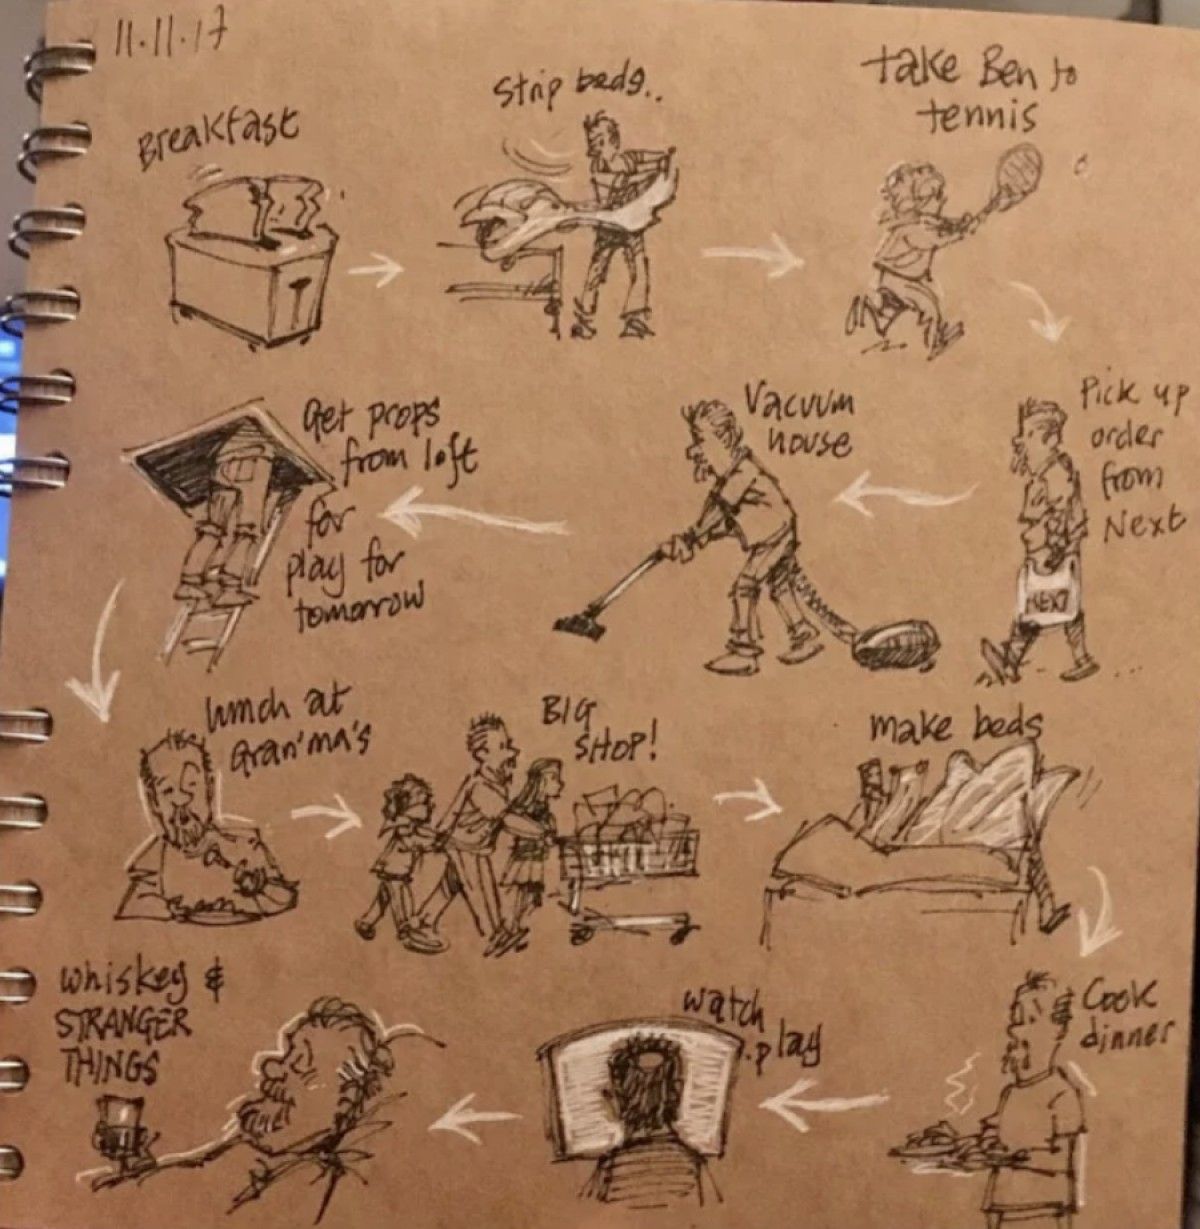 11.11.17
Breakfast
Strip beds..
take Ben to
tennis
Pick up
order
from
Next
NEXT
Vacuum
house
Get props
from loft
for
play for
tomorrow
lunch at
Gran'ma's
BIG
SHOP!
make beds
Cook
dinner
watch
play
whiskey &
STRANGER
THINGS